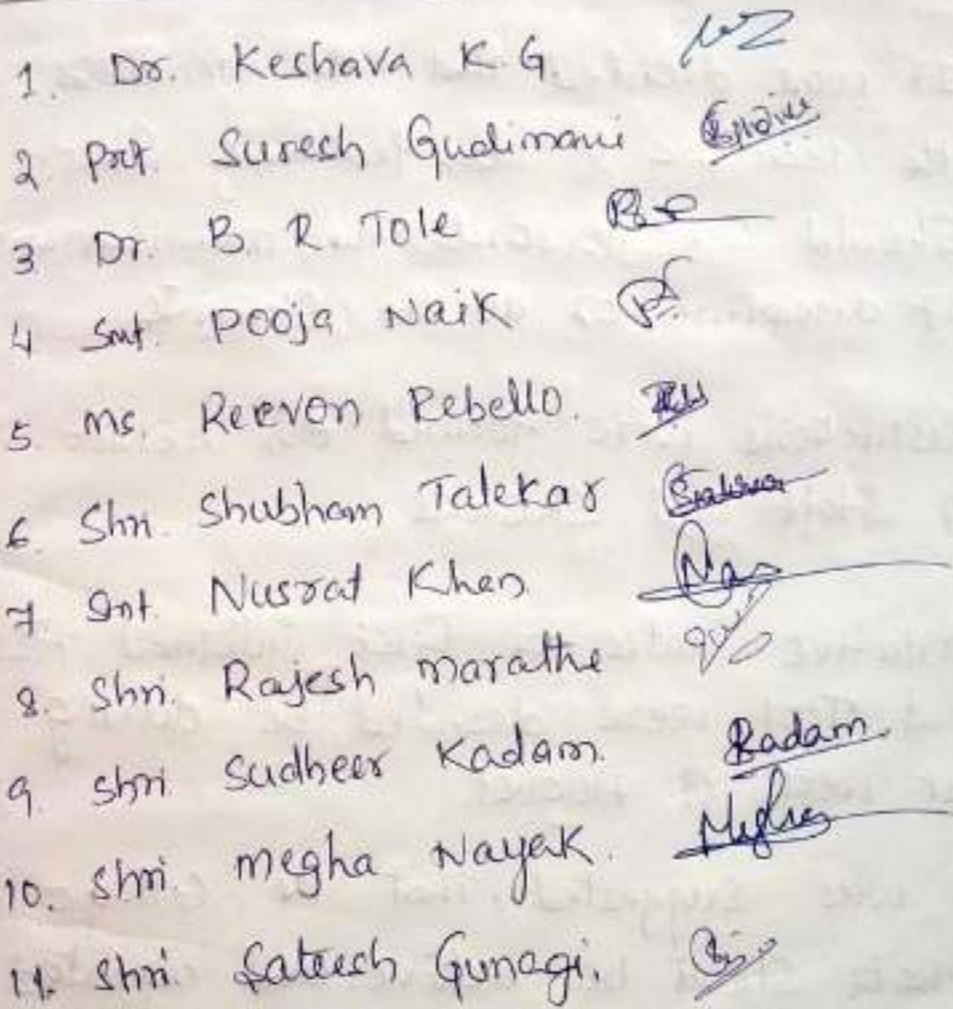 1. Dr. Keshava K G.
2 Prof. Suresh Gudimani
3 Dr. B. R Tole
4 Smt. Pooja Naik
5 Ms. Reevon Rebello.
6. Shri. Shubham Talekar
7 Smt. Nusrat Khan
8. Shri. Rajesh Marathe
9. Shri Sudheer Kadam. Kadam
10. Shri. Megha Nayak. Megha
11. Shri. Sateesh Gunagi.